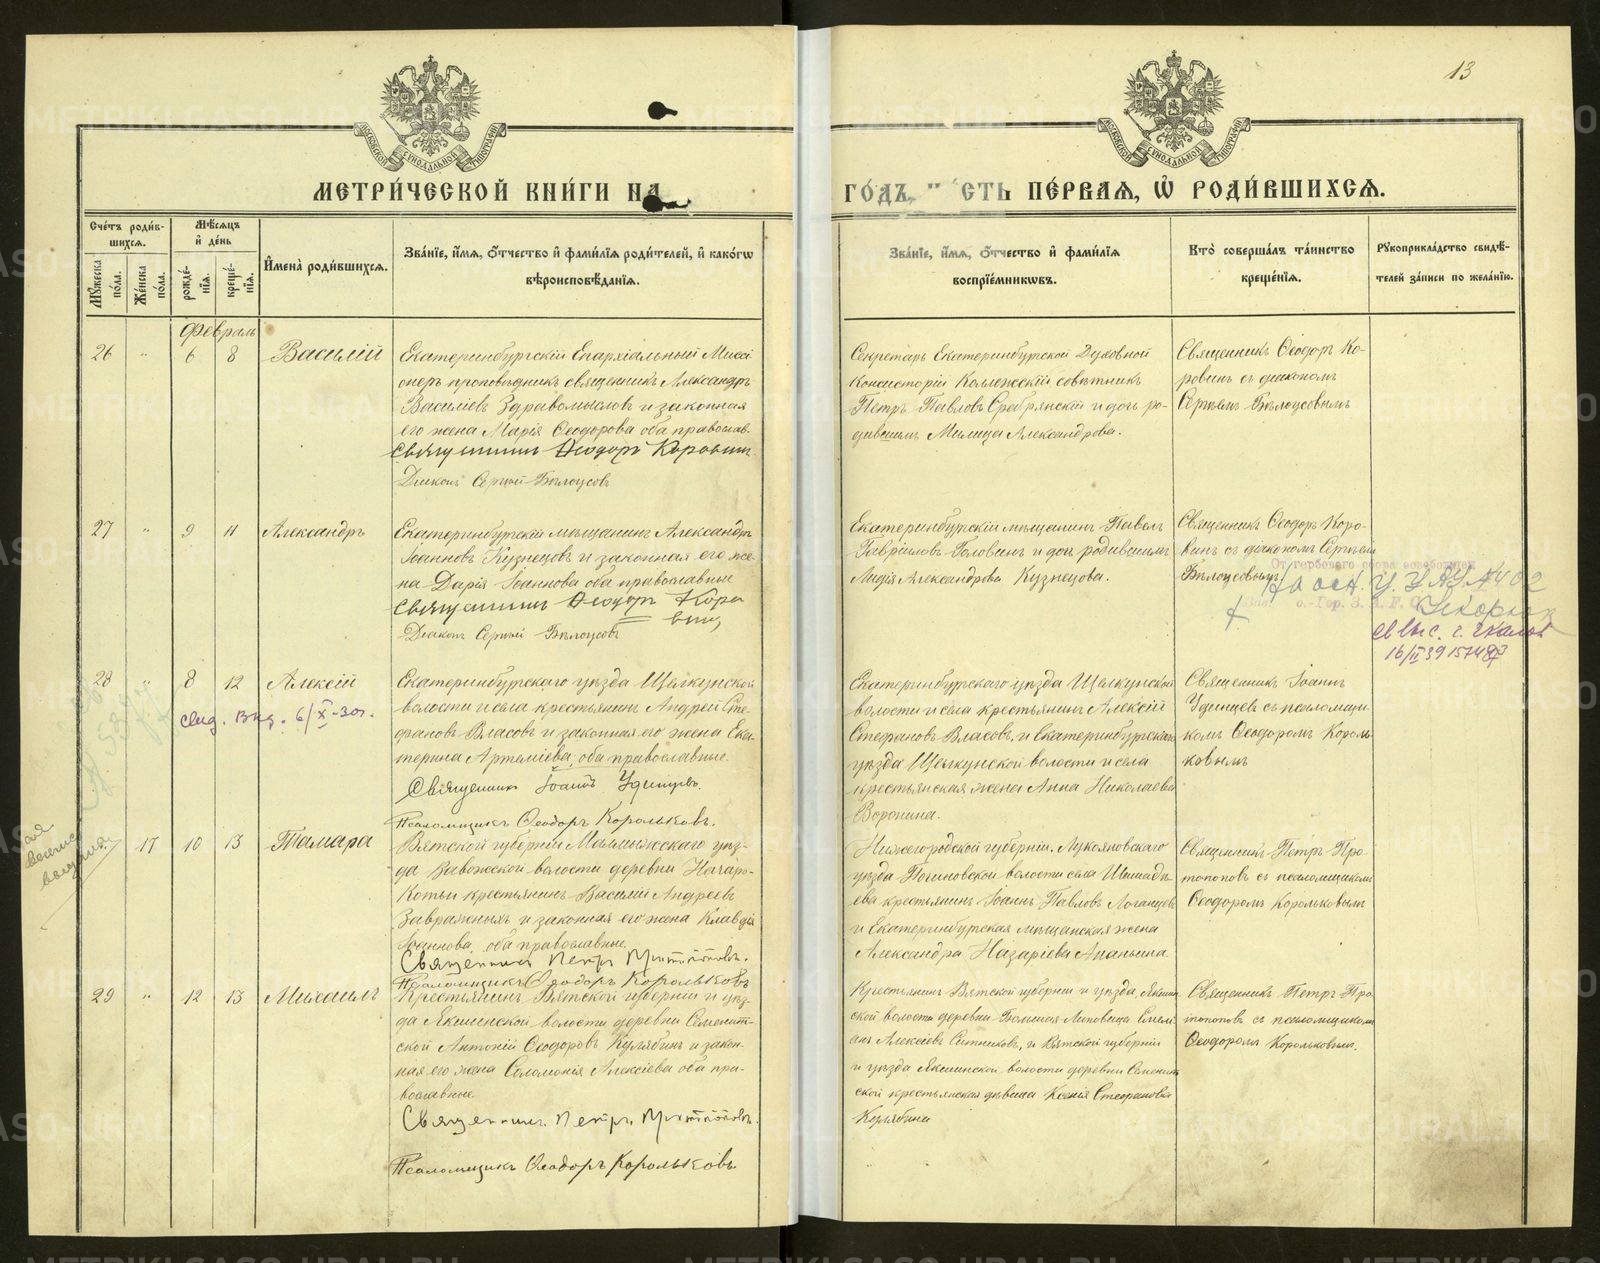 13
МЕТРИ́ЧЕСКОЙ КНИ́ГИ НА
ГО́ДЪ, ЧА́СТЬ ПЕ́РВАЯ, Ѡ҆ РОДИ́ВШИХСЯ.
Сче́тъ роди́в-
шихся.
Мѣ́сяцъ
и҆ де́нь
Му́жеска по́ла.
Же́нска по́ла.
рожде́-
нїя.
креще́-
нїя.
И҆мена̀ роди́вшихся.
Зва́нїе, и҆́мя, ѻ҆́тчество и҆ фами́лїя роди́телей, и҆ како́гѡ
вѣроисповѣ́данїя.
Зва́нїе, и҆́мя, ѻ҆́тчество и҆ фами́лїя
воспрїе́мникѡвъ.
Кто̀ соверша́лъ та́инство
креще́нїя.
Рукоприкла́дство свидѣ́-
телей за́писи по жела́нїю.
Февраль
26 " 6 8 Василій
Екатеринбургскій Епархіальный Миссі
онеръ проповѣдникъ священникъ Александръ
Василіевъ Здравомысловъ и законная
его жена Марія Ѳеодорова оба православ.
Священникъ Ѳеодоръ Коровинъ
Діаконъ Сергій Бѣлоусовъ
Секретарь Екатеринбургской Духовной
Консисторіи Коллежскій совѣтникъ
Петръ Павловъ Сребрянскій и дочь ро-
дившихъ Милица Александрова.
Священникъ Ѳеодоръ Ко-
ровинъ съ діакономъ
Сергіемъ Бѣлоусовымъ
27 " 9 11 Александръ
Екатеринбургскій мѣщанинъ Александръ
Іоанновъ Кузнецовъ и законная его же-
на Дарія Іоаннова оба православные
Священникъ Ѳеодоръ Коро
винъ
Діаконъ Сергій Бѣлоусовъ
Екатеринбургскій мѣщанинъ Павелъ
Гавріиловъ Головинъ и дочь родившихъ
Лидія Александрова Кузнецова.
Священникъ Ѳеодоръ Коро-
винъ съ діакономъ Сергіемъ
Бѣлоусовымъ
От гербового сбора освобожден
16/II 39
28 " 8 12 Алексій
свид. выд. 6/X-30г.
Екатеринбургскаго уѣзда Щелкунской
волости и села крестьянинъ Андрей Сте-
фановъ Власовъ и законная его жена Ека-
терина Артеміева, оба православные.
Священникъ Іоаннъ Удинцевъ.
Псаломщикъ Ѳеодоръ Корольковъ.
Екатеринбургскаго уѣзда Щелкунской
волости и села крестьянинъ Алексій
Стефановъ Власовъ, и Екатеринбургскаго
уѣзда Щелкунской волости и села
крестьянская жена Анна Николаева
Воронина.
Священникъ Іоаннъ
Удинцевъ съ псаломщи-
комъ Ѳеодоромъ Король-
ковымъ
" 17 10 13 Тамара
Вятской губерніи Малмыжскаго уѣз-
да Вавожской волости деревни
крестьянинъ Василій Андреевъ
Завражныхъ и законная его жена Клавдія
Іоаннова, оба православные.
Священникъ Петръ Протопоповъ.
Псаломщикъ Ѳеодоръ Корольковъ
Нижегородской губерніи, Лукояновскаго
уѣзда Починковской волости села
ева крестьянинъ Іоаннъ Павловъ Логанцевъ
и Екатеринбургская мѣщанская жена
Александра Назаріева Ананьина
Священникъ Петръ Про-
топоповъ съ псаломщикомъ
Ѳеодоромъ Корольковымъ
29 " 12 13 Михаилъ
Крестьянинъ Вятской губерніи и уѣз-
да Якшинской волости деревни Семенит-
ской Антоній Ѳеодоровъ Кулябинъ и закон-
ная его жена Соломонія Алексіева оба пра-
вославные.
Священникъ Петръ Протопоповъ.
Псаломщикъ Ѳеодоръ Корольковъ.
Крестьянинъ Вятской губерніи и уѣзда, Якшин
ской волости деревни Большая Липовица Емелі
анъ Алексіевъ Ситниковъ, и Вятской губерніи
и уѣзда Якшинской волости деревни Семенит
ской крестьянская дѣвица Ксенія Стефановна
Кулябина
Священникъ Петръ Про
топоповъ съ псаломщикомъ
Ѳеодоромъ Корольковымъ.